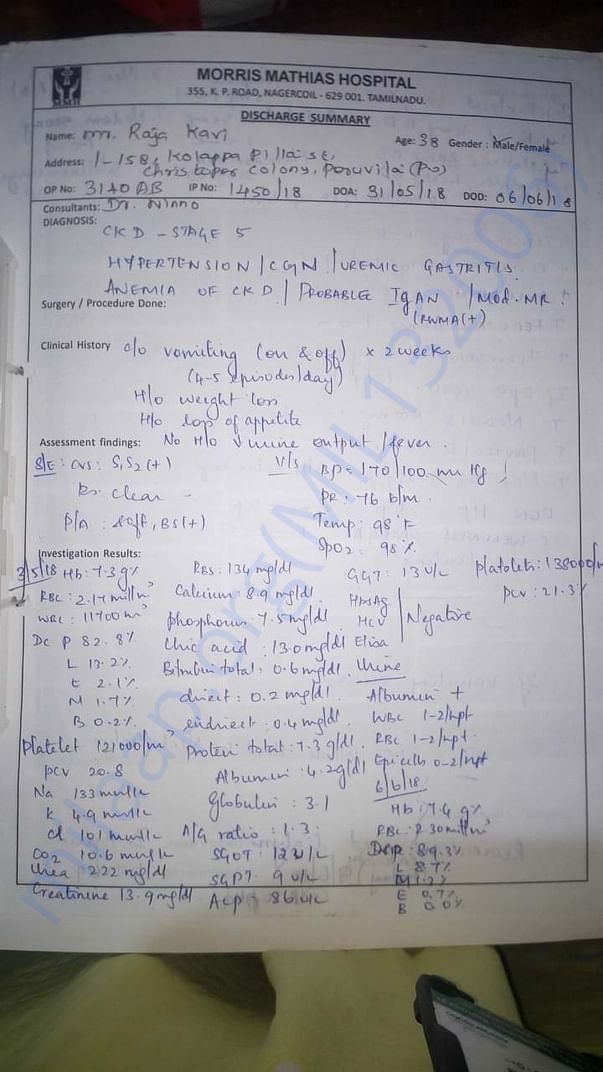 MMH
MORRIS MATHIAS HOSPITAL
355, K. P. ROAD, NAGERCOIL - 629 001. TAMILNADU.
DISCHARGE SUMMARY
Name: Mr. Raja Kavi Age: 38 Gender: Male/Female
Address: 1-158, Kolappa Pillai st,
Christopar Colony, Poruvilai (Po)
OP No: 3140AB IP No: 1450/18 DOA: 31/05/18 DOD: 06/06/18
Consultants: Dr. Ninno
DIAGNOSIS:
CKD - STAGE 5
HYPERTENSION / CGN / UREMIC GASTRITIS
ANEMIA OF CKD / PROBABLE IgAN / MOD. MR
(RWMA(+)
Surgery / Procedure Done:
Clinical History c/o vomiting (on & off) x 2 weeks
(4-5 episodes/day)
H/o weight loss
H/o loss of appetite
Assessment findings: No H/o ↓ urine output / fever.
S/E: CVS: S1S2(+) V/S BP = 170/100 mm Hg
RS: clear PR: 76 b/m.
P/A: soft, BS(+) Temp: 98°F
SpO2: 98%
Investigation Results:
3/5/18 Hb: 7.3 g% RBS: 134 mg/dl GGT: 13 u/L Platelets: 138000/m
RBC: 2.17 mill/m³ Calcium: 8.9 mg/dl HbsAg PCV: 21.3%
WBC: 11700 m³ phosphorus: 7.5 mg/dl HCV Negative
DC P 82.8% Uric acid: 13.0 mg/dl Elisa
L 13.2% Bilirubin total: 0.6 mg/dl Urine
E 2.1% direct: 0.2 mg/dl Albumin +
M 1.7% indirect: 0.4 mg/dl WBC 1-2/hpf
B 0.2% Protein total: 7.3 g/dl RBC 1-2/hpf
Platelet 121000/m³ Albumin: 4.2 g/dl Epicells 0-2/hpf
PCV 20.8 Globulin: 3.1 6/6/18
Na 133 mm/L Hb: 7.4 g%
K 4.9 mm/L A/G ratio: 1.3 RBC: 2.30 mill/m³
Cl 101 mm/L SGOT: 12 u/L DC P: 89.3%
CO2 10.6 mm/L SGPT: 9 u/L L 8.7%
Urea 222 mg/dl ALP: 86 u/L M 1.2%
Creatinine 13.9 mg/dl E 0.7%
B 0.0%
milaap.org(MIL132006)